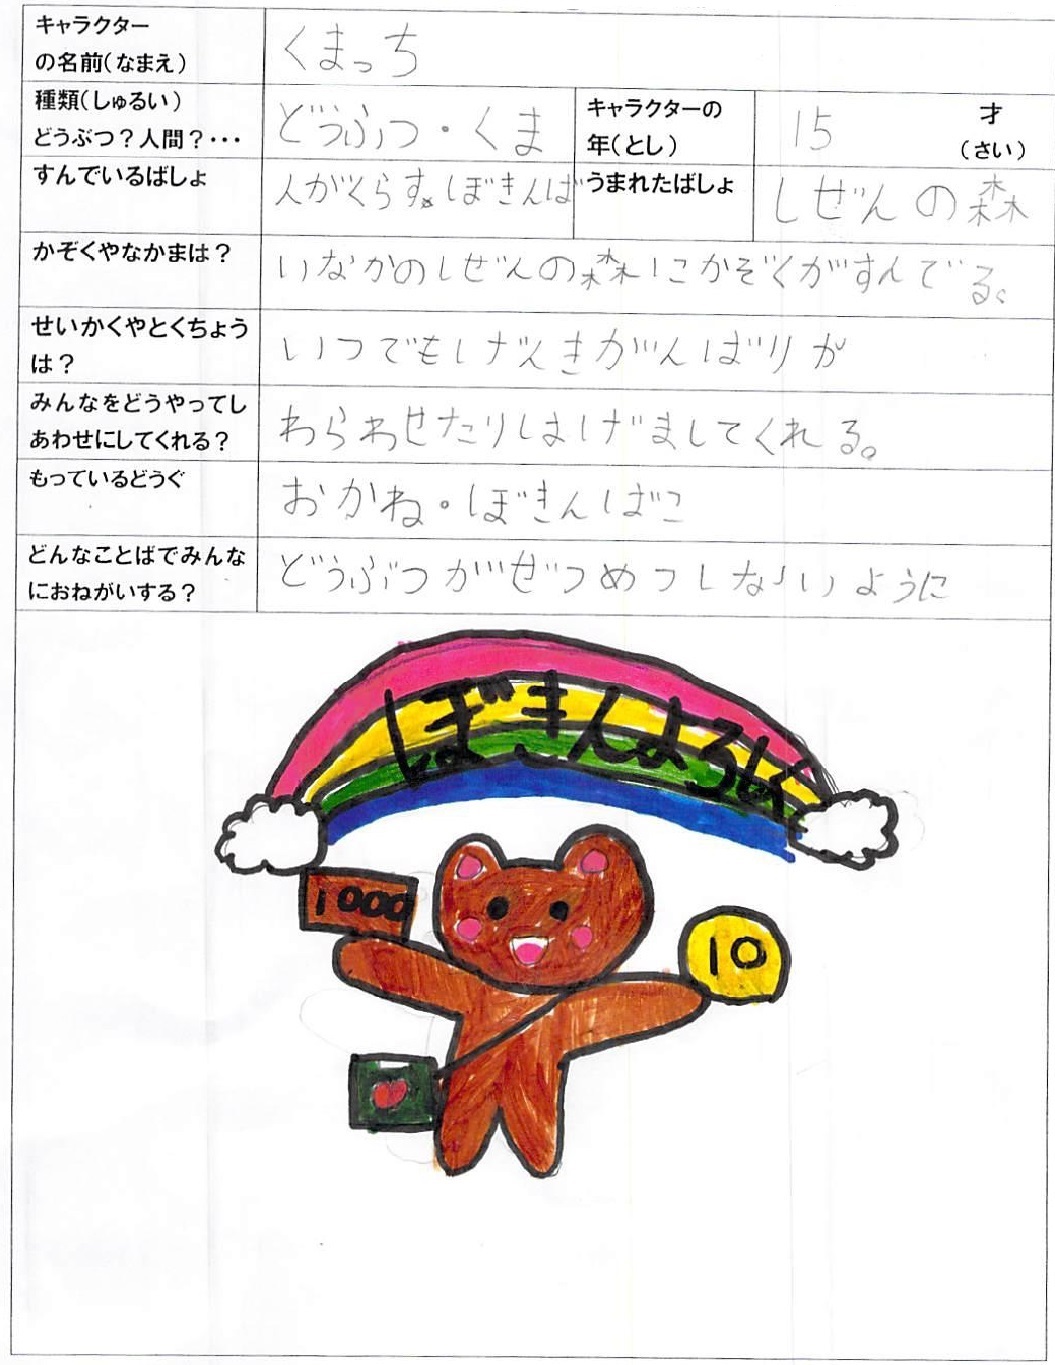 キャラクター
の名前(なまえ)
くまっち
種類(しゅるい)
どうぶつ?人間?・・・
どうぶつ・くま
キャラクターの
年(とし)
15
才
(さい)
すんでいるばしょ
人がくらす。ぼきんば
うまれたばしょ
しぜんの森
かぞくやなかまは?
いなかのしぜんの森にかぞくがすんでる。
せいかくやとくちょう
は?
いつでもげんきがんばりか
みんなをどうやってし
あわせにしてくれる?
わらわせたりはげましてくれる。
もっているどうぐ
おかね・ぼきんばこ
どんなことばでみんな
におねがいする?
どうぶつがぜつめつしないように
ぼきんよろしく
1000
10